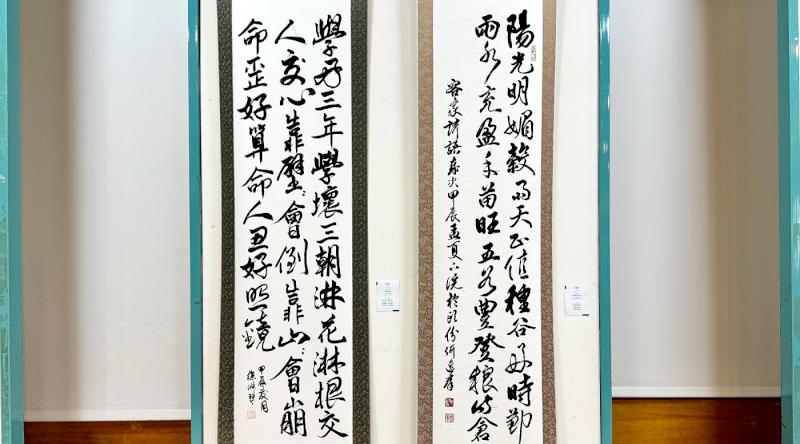 陽光明媚穀雨天正值種谷好時勤
雨水充盈禾苗旺五谷豐登糧滿倉
客家諺語歲次甲辰孟夏於頭份何
學好三年學壞三朝淋花淋根交
人交心靠壁〻會倒靠山〻會崩
命歪好算命人丑好照鏡
甲辰夏月
徐